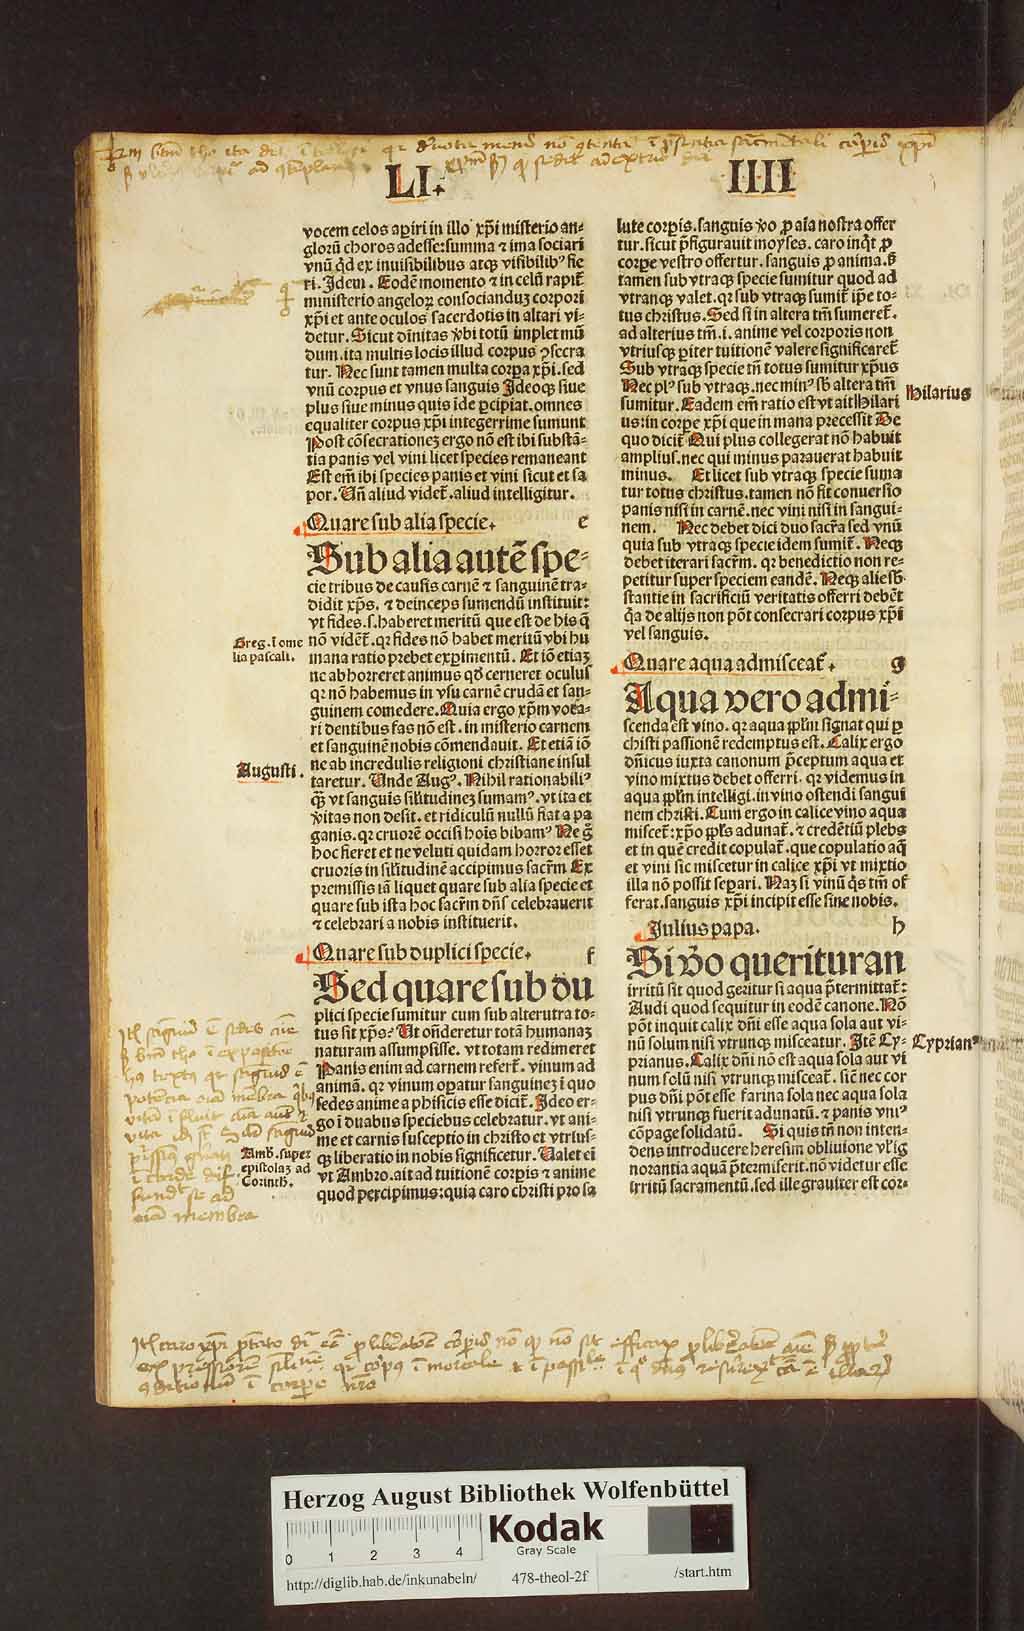 LI.
IIII
vocem celos aperiri in illo xp̄i misterio an-
gloꝝ choros adesse: summa ⁊ ima sociari
vnū q̄d ex inuisibilibus atqꝫ visibilibꝰ fie
ri. Idem. Eodē momento ⁊ in celū rapit᷑
ministerio angeloꝝ consocianduꝫ corpori
xp̄i et ante oculos sacerdotis in altari vi-
detur. Sicut diuinitas v̄bi totū implet mū
dum. ita multis locis illud corpus ꝯsecra
tur. Nec sunt tamen multa corpa xp̄i. sed
vnū corpus et vnus sanguis Ideoqꝫ siue
plus siue minus quis īde ꝑcipiat. omnes
equaliter corpus xp̄i integerrime sumunt
Post cōsecrationeꝫ ergo nō est ibi substā-
tia panis vel vini licet species remaneant
Est em̄ ibi species panis et vini sicut et sa
por. Vn̄ aliud videt᷑. aliud intelligitur.
Quare sub alia specie. e
Sub alia autē spe-
cie tribus de causis carnē ⁊ sanguinē tra-
didit xp̄s. ⁊ deinceps sumendū instituit:
vt fides. s. haberet meritū que est de his q̄
Greg. ī ome
lia pascali.
nō vidēt᷑. qꝛ fides nō habet meritū vbi hu
mana ratio prebet exꝑimentū. Et iō etiaꝫ
ne abhorreret animus qd̄ cerneret oculus
qꝛ nō habemus in vsu carnē crudā et san-
guinem comedere. Quia ergo xp̄m vora-
ri dentibus fas nō est. in misterio carnem
et sanguinē nobis cōmendauit. Et etiā iō
ne ab incredulis religioni christiane insul
Augusti.
taretur. Unde Augꝰ. Nihil rationabiliꝰ
qꝫ̄ vt sanguis similitudineꝫ sumamꝰ. vt ita et
v̄itas non desit. et ridiculū nullū fiat a pa
ganis. qꝛ cruorē occisi hoīs bibamꝰ Ne g̊
hoc fieret et ne veluti quidam horror esset
cruoris in similitudinē accipimus sacr̄m Ex
premissis iā liquet quare sub alia specie et
quare sub ista hoc sacr̄m dn̄s celebrauerit
⁊ celebrari a nobis instituerit.
Quare sub duplici specie. f
Sed quare sub du
plici specie sumitur cum sub alterutra to-
tus sit xp̄s? Ut on̄deretur totā humanaꝫ
naturam assumpsisse. vt totam redimeret
Panis enim ad carnem refert᷑. vinum ad
animā. qꝛ vinum opatur sanguineꝫ ī quo
sedes anime a phisicis esse dicit᷑. Ideo er-
go ī duabus speciebus celebratur. vt ani-
me et carnis susceptio in christo et vtrius-
Amb. super
epistolaꝫ ad
Corinth.
qꝫ liberatio in nobis significetur. Ualet ei
vt Ambro. ait ad tuitionē corpis ⁊ anime
quod percipimus: quia caro christi pro sa
lute corpis. sanguis v̄o ꝓ aīa nostra offer
tur. sicut p̄figurauit moyses. caro inq̇t ꝓ
corpe vestro offertur. sanguis ꝓ anima. s̄
tamen sub vtraqꝫ specie sumitur quod ad
vtranqꝫ valet. qꝛ sub vtraqꝫ sumit᷑ ip̄e to-
tus christus. Sed si in altera tm̄ sumeret᷑.
ad alterius tm̄. i. anime vel corporis non
vtriusqꝫ pariter tuitionē valere significaret᷑
Sub vtraqꝫ specie tn̄ totus sumitur xp̄us
Nec plꝰ sub vtraqꝫ. nec minꝰ sb̄ altera tm̄
Hilarius
sumitur. Eadem em̄ ratio est vt ait Hilari
us: in corpe xp̄i que in mana precessit De
quo dicit᷑ Qui plus collegerat nō habuit
amplius. nec qui minus parauerat habuit
minus. Et licet sub vtraqꝫ specie suma
tur totus christus. tamen nō fit conuersio
panis nisi in carnē. nec vini nisi in sangui-
nem. Nec debet dici duo sacr̄a sed vnū
quia sub vtraqꝫ specie idem sumit᷑. Neqꝫ
debet iterari sacr̄m. qꝛ benedictio non re-
petitur super speciem eandē. Neqꝫ alie sb̄-
stantie in sacrificiū veritatis offerri debēt
q̄a de alijs non pōt consecrari corpus xp̄i
vel sanguis.
Quare aqua admisceat᷑. g
Aqua vero admi-
scenda est vino. qꝛ aqua pplm̄ signat qui ꝑ
christi passionē redemptus est. Calix ergo
dn̄icus iuxta canonum p̄ceptum aqua et
vino mixtus debet offerri. qꝛ videmus in
aqua pplm̄ intelligi. in vino ostendi sangui
nem christi. Cum ergo in calice vino aqua
miscet᷑: xp̄o ppl̄s adunat᷑. ⁊ credētiū plebs
et in quē credit copulat᷑. que copulatio aq̄
et vini sic miscetur in calice xp̄i vt mixtio
illa nō possit separi. Naꝫ si vinū q̇s tm̄ of
ferat. sanguis xp̄i incipit esse sine nobis.
Julius papa. h
Si v̄o querituran
irritū sit quod geritur si aqua p̄termittat᷑:
Audi quod sequitur in eodē canone. Nō
pōt inquit calix dn̄i esse aqua sola aut vi-
Cyprianꝰ
nū solum nisi vtrunqꝫ misceatur. Itē Cy-
prianus. Calix dn̄i nō est aqua sola aut vi
num solū nisi vtrunqꝫ misceat᷑. sic nec cor
pus dn̄i pōt esse farina sola nec aqua sola
nisi vtrunqꝫ fuerit adunatū. ⁊ panis vniꝰ
cōpage solidatū. Si quis tn̄ non inten-
dens introducere heresim obliuione vl̓ ig
norantia aquā p̄termiserit. nō videtur esse
irritū sacramentū. sed ille grauiter est cor-
Herzog August Bibliothek Wolfenbüttel
0 1 2 3 4
Kodak
Gray Scale
http://diglib.hab.de/inkunabeln/ 478-theol-2f /start.htm